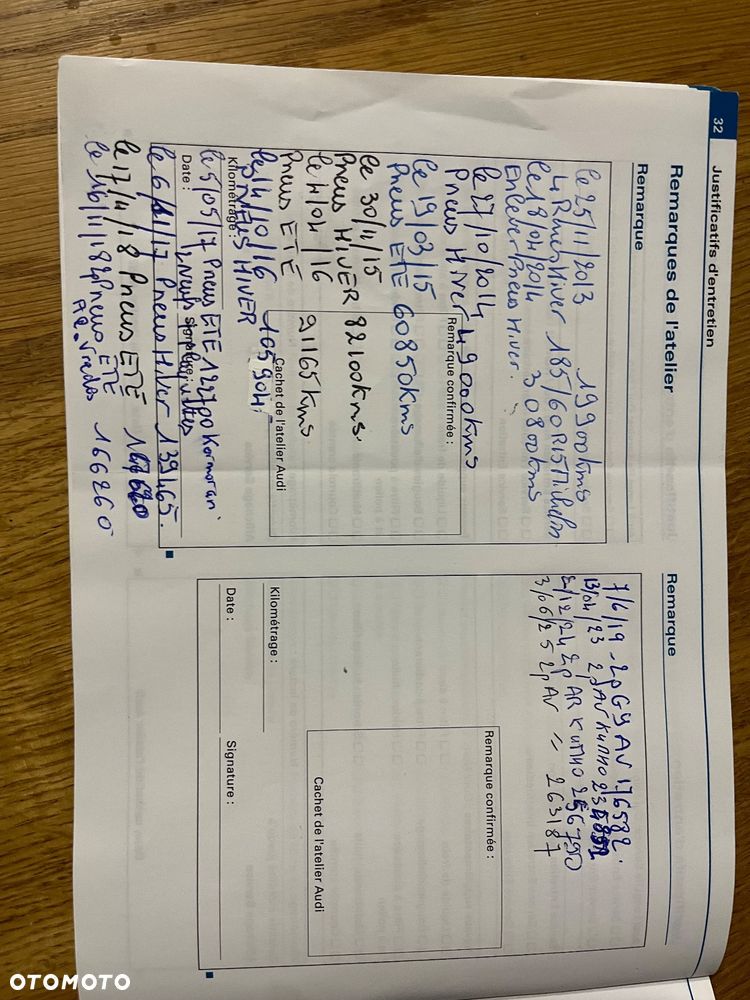 32
Justificatifs d'entretien
Remarques de l'atelier
Remarque
le 25/11/2013 19900kms
4 Rnes Hiver 185/60R15 Michelin
le 18/04/2014 30800kms
Enlever Pneus Hiver.
le 27/10/2014
Pneus Hiver 49000kms
le 19/03/15
Pneus ETE 60850kms
le 30/11/15
Pneus HIVER 82100kms
le 4/04/16
Pneus ETE 91165kms
le 14/10/16 105904
PNEUS HIVER
le 5/05/17 Pneus ETE 122700 Kormoran
2 Neufs
le 6/11/17 Pneus Hiver 139465.
le 17/4/18 Pneus ETE
le 16/11/18 Pneus ETE 166260
Remarque confirmée :
Cachet de l'atelier Audi
Kilométrage :
Date :
Signature :
Remarque
7/6/19 - 2p GY AV 176582.
13/04/23 2pAV KUMHO
2/12/24 2p AR KUMHO 256750
3/06/25 2pAV = 263187
Remarque confirmée :
Cachet de l'atelier Audi
Kilométrage :
Date :
Signature :
OTOMOTO